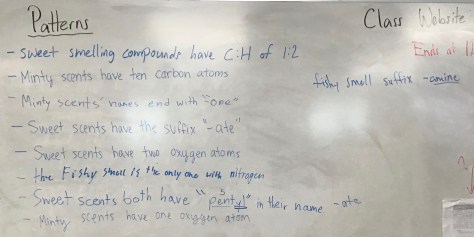 Patterns
Class Website
Ends at
- Sweet smelling compounds have C:H of 1:2
- Minty scents have ten carbon atoms
fishy smell suffix -amine
- Minty scents' names end with "-one"
- Sweet scents have the suffix "-ate"
- Sweet scents have two oxygen atoms
- the Fishy smell is the only one with nitrogen
5
- Sweet scents both have "pentyl" in their name -ate
- Minty scents have one oxygen atom